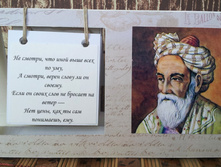 Не смотри, что иной выше всех
по уму,
А смотри, верен слову ли он
своему.
Если он своих слов не бросает на
ветер —
Нет цены, как ты сам
понимаешь, ему.